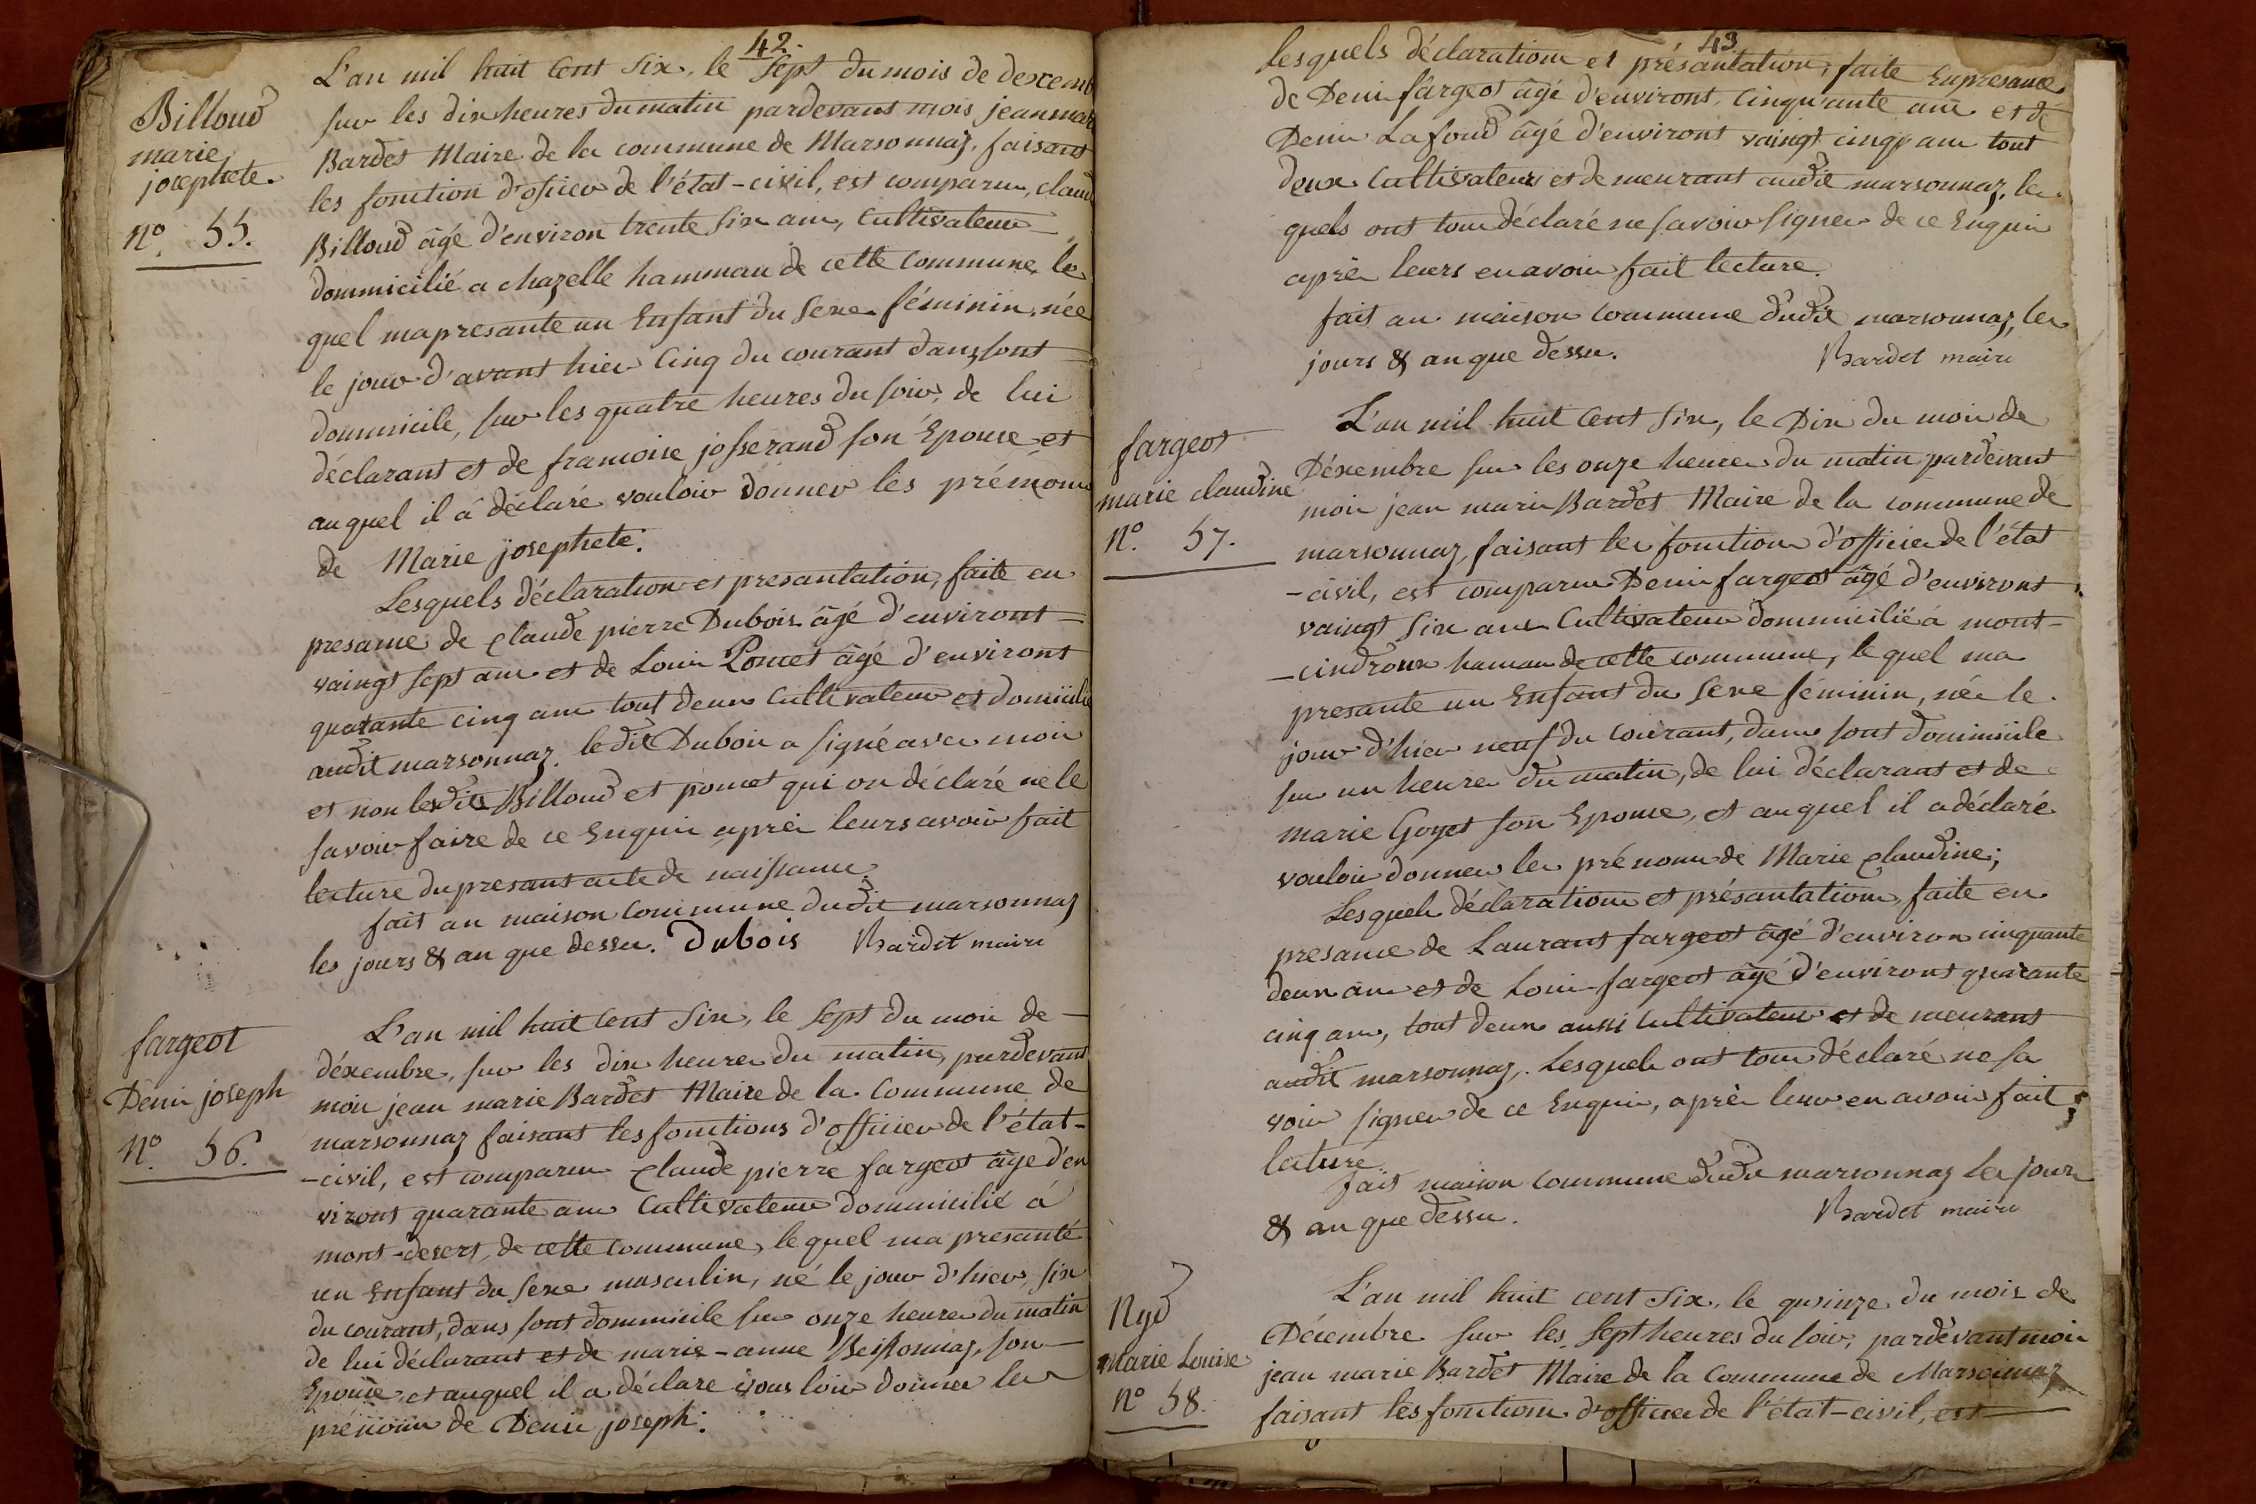 42.
Billoud
marie
josephete.
N.o 55.
L'an mil huit Cent Six, le Sept du mois de dexemb
sur les dix heures du matin pardevant mois jean mar
Bardet Maire de la commune de Marsonnaz, faisant
les fonction d'oficier de l'état-civil, est comparu, claud
Billoud âgé d'environ trente Six ans, Cultivateur
dommicilié a chazelle hammau de cette Commune, le
quel ma presante un Enfant du Sexe féminin, née
le jour d'avant hier Cinq du courant dans sont
dommicile, sur les quatre heures du soir, de lui
déclarant et de francoise josserand son Epouse et
auquel il â déclaré vouloir donner les prénom
de Marie josephete.
Lesquels déclaration et presantation, faite en
presance de Claude pierre Dubois âgé d'environt
vaingt sept ans et de Louis Poncet âgé d'environt
quarante cinq ans tout deux Cultivateur et domicilié
audit marsonnaz. le dit Dubois a signé avec mois
et non lesdits Billoud et poncet qui on déclaré ne le
savoir faire de ce Enquis après leurs avoir fait
lecture du presant acte de naissance.
fait au maison Commune dudit marsonnaz
les jours & an que dessu. Dubois Bardet maire
fargeot
Denis joseph
N.o 56.
L'an mil huit Cent Six, le Sept du mois de
déxembre, sur les dix heures du matin, pardevant
mois jean marie Bardet Maire de la Commune de
marsonnaz faisant les fonctions d'officier de l'état-
-civil, est comparu Claude pierre fargeot âgé d'en
viront quarante ans Cultivateur dommicilié à
mont-desert, de cette Commune, le quel ma presanté
un Enfant du Sexe masculin, né le jour d'hier, six
du courant, dans sont dommicile sur onze heures du matin
de lui déclarant et de marie-anne Beissonnaz, son
Epouse, et auquel il a déclare vous loir donner les
prénoms de Denis joseph.
43
lesquels déclarations et présantation, faite Enpresance
de Denis fargeot âgé d'environt Cinquante ans et de
Denis Lafoud âgé d'environt vaingt cinq ans tout
deux Cultivateurs et demeurant audit marsonnaz, les
quels ont tous déclaré ne savoir signer de ce Enquis
après leurs en avoir fait lecture.
fait au maison Commune dudit marsonnaz, les
jours & an que dessu. Bardet maire
fargeot
marie claudine
N.o 57.
L'an mil huit Cent Six, le Dix du mois de
Déxembre sur les onze heures du matin pardevant
mois jean marie Bardet Maire de la commune de
marsonnaz, faisant les fonctions d'officier de l'état
-civil, est comparu Denis fargeot âgé d'environt
vaingt Six ans Cultivateur dommicilié á mont-
-cindroux hamau de cette commune, le quel ma
presante un Enfant du Sexe féminin, née le
jour d'hier neuf du courant, dans sont dommicile
sur un heures du matin, de lui déclarant et de
marie Goyet son Epouse, et auquel il a déclaré
vouloir donner les prénoms de Marie Claudine;
Lesquels déclarations et présantations, faite en
presance de Laurant fargeot âgé d'environ cinquante
deux ans et de Louis fargeot âgé d'environt quarante
cinq ans, tout deux aussi Cultivateur et de meurant
audit marsonnaz. Lesquels ont tous déclaré ne sa
voir signer de ce Enquis, après leur en avoir fait
lecture.
fait maison Commune dudit marsonnaz les jours
& an que dessu. Bardet maire
Nyd
Marie Louise
N.o 58.
L'an mil huit cent Six, le quinze du mois de
Décembre sur les sept heures du soir, pardevant moi
jean marie Bardet Maire de la Commune de Marsonnaz
faisant les fonctions d'officier de l'état-civil, est